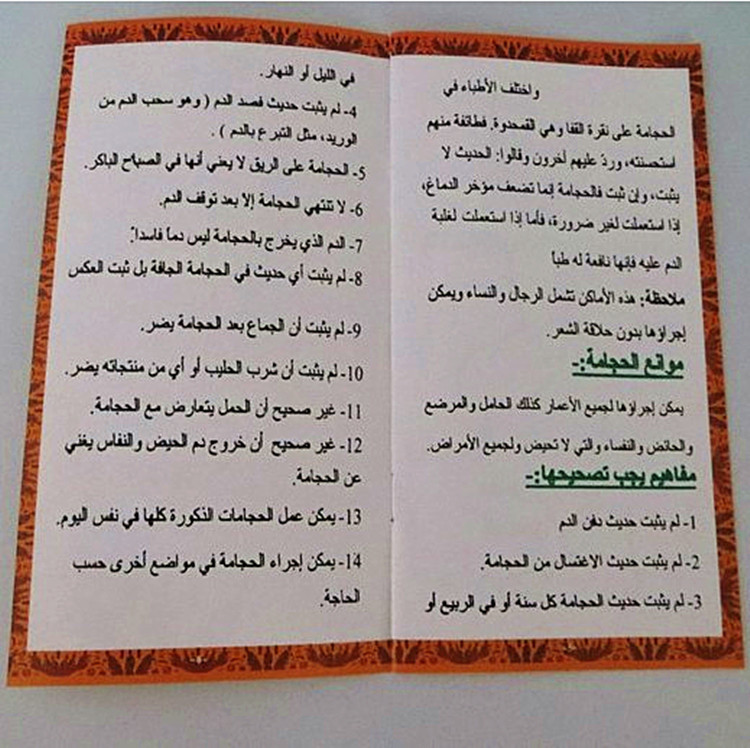 واختلف الأطباء في
الحجامة على نقرة القفا وهي القمحدوة. فطائفة منهم
استحسنته، وردّ عليهم آخرون وقالوا: الحديث لا
يثبت، وإن ثبت فالحجامة إنما تضعف مؤخر الدماغ،
إذا استعملت لغير ضرورة، فأما إذا استعملت لغلبة
الدم عليه فإنها نافعة له طباً
ملاحظة: هذه الأماكن تشمل الرجال والنساء ويمكن
إجراؤها بدون حلاقة الشعر.
موانع الحجامة:-
يمكن إجراؤها لجميع الأعمار كذلك الحامل والمرضع
والحائض والنفساء والتي لا تحيض ولجميع الأمراض.
مفاهيم يجب تصحيحها:-
1- لم يثبت حديث دفن الدم
2- لم يثبت حديث الاغتسال من الحجامة.
3- لم يثبت حديث الحجامة كل سنة أو في الربيع أو
في الليل أو النهار.
4- لم يثبت حديث فصد الدم ( وهو سحب الدم من
الوريد، مثل التبرع بالدم ) .
5- الحجامة على الريق لا يعني أنها في الصباح الباكر.
6- لا تنتهي الحجامة إلا بعد توقف الدم.
7- الدم الذي يخرج بالحجامة ليس دماً فاسداً.
8- لم يثبت أي حديث في الحجامة الجافة بل ثبت العكس
9- لم يثبت أن الجماع بعد الحجامة يضر.
10- لم يثبت أن شرب الحليب أو أي من منتجاته يضر.
11- غير صحيح أن الحمل يتعارض مع الحجامة.
12- غير صحيح أن خروج دم الحيض والنفاس يغني
عن الحجامة.
13- يمكن عمل الحجامات الذكورة كلها في نفس اليوم.
14- يمكن إجراء الحجامة في مواضع أخرى حسب
الحاجة.